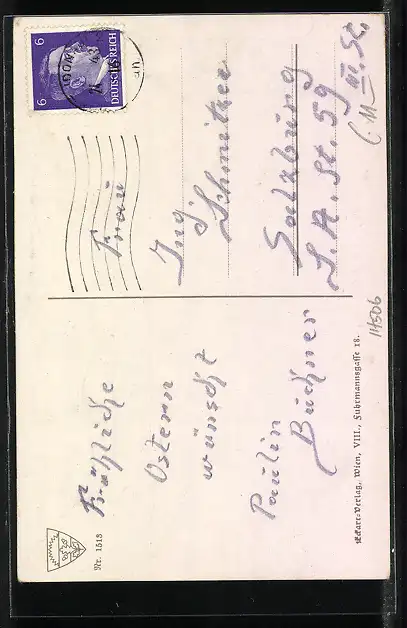 Fröhliche
Ostern
wünscht
Paulin
Büchner
Nr. 1513
Eckart-Verlag, Wien, VIII., Fuhrmannsgasse 18.
6 6
DEUTSCHES REICH
Frau
Ing
Schnitzer
Salzburg
S. A. St. 59
III. St.
11506